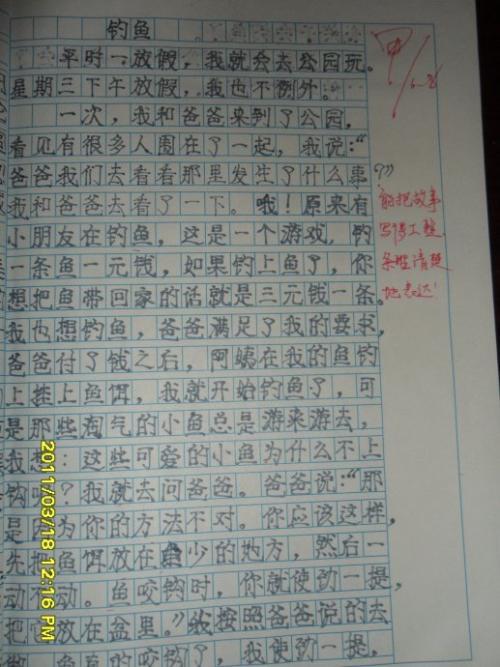 钓鱼
平时一放假，我就会去公园玩。
星期三下午放假，我也不例外。
一次，我和爸爸来到了公园，
看见有很多人围在了一起，我说：“
爸爸我们去看看那里发生了什么事？”
我和爸爸去看了一下。哦！原来有
小朋友在钓鱼，这是一个游戏，钓
一条鱼一元钱，如果钓上鱼了，你
想把鱼带回家的话就是三元钱一条。
我也想钓鱼，爸爸满足了我的要求，
爸爸付了钱之后，阿姨在我的鱼钓
上挂上鱼饵，我就开始钓鱼了，可
是那些淘气的小鱼总是游来游去，
我想：这些可爱的小鱼为什么不上
钩呢？我就去问爸爸。爸爸说：“那
是因为你的方法不对。你应该这样，
先把鱼饵放在鱼少的地方，然后一
动不动。鱼咬钩时，你就使劲一提，
把鱼放在盆里。”我按照爸爸说的去
鱼真的咬钩了，我使劲一提，
甲
能把故事
写得工整
条理清楚
地表达！
2011/03/18 12:16 PM